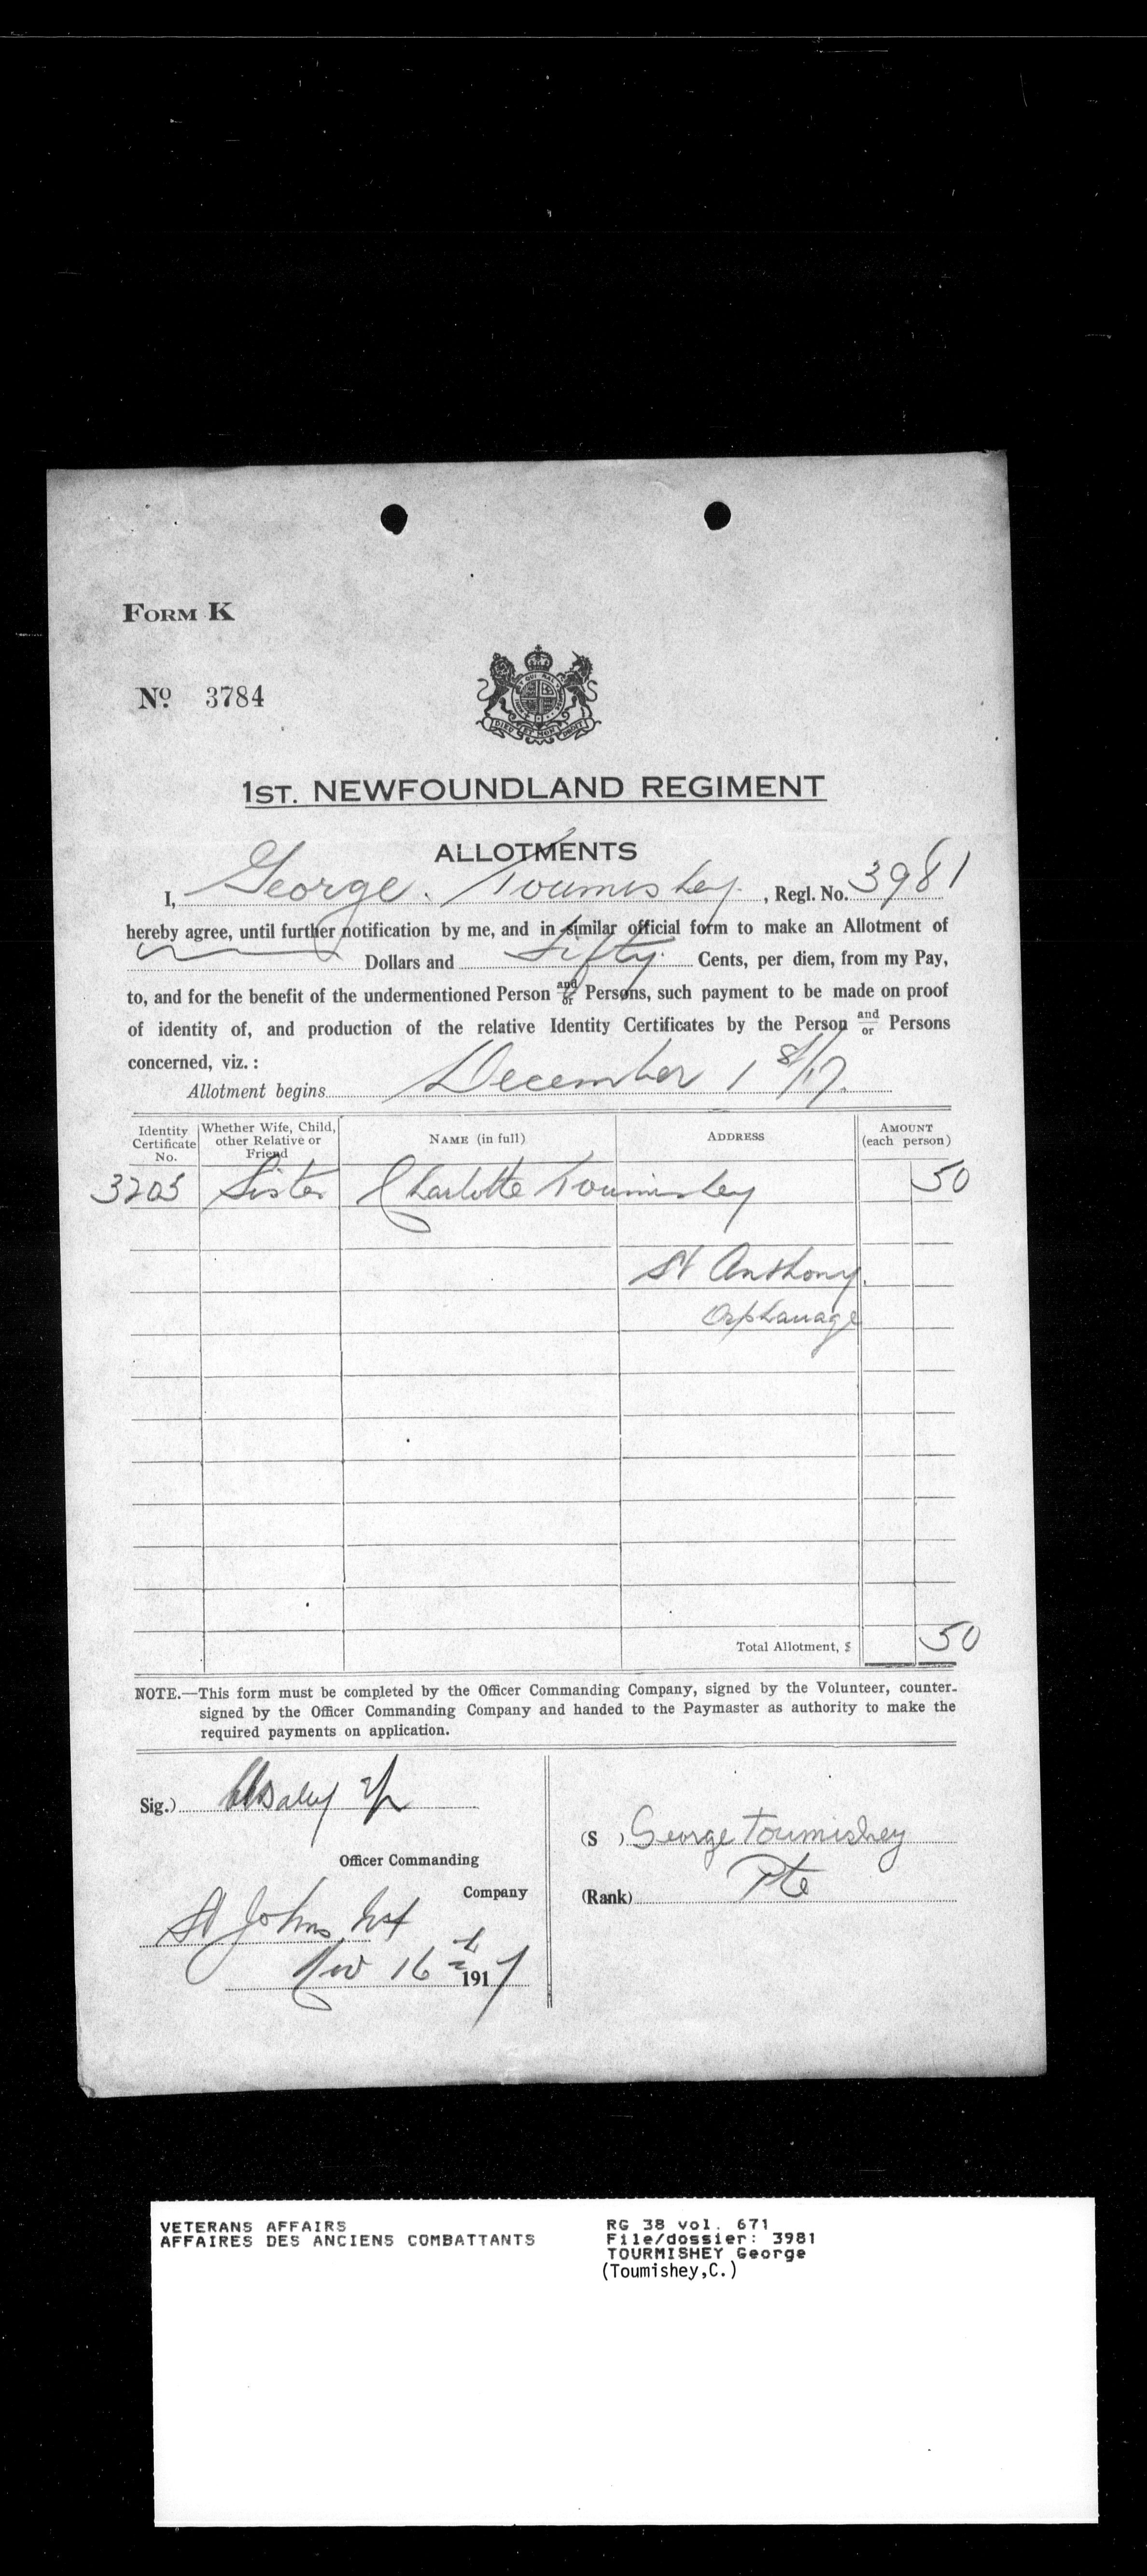 FORM K
No. 3784
1ST. NEWFOUNDLAND REGIMENT
ALLOTMENTS
I, George. Toumishey. , Regl. No. 3981
hereby agree, until further notification by me, and in similar official form to make an Allotment of
Dollars and Fifty. Cents, per diem, from my Pay,
to, and for the benefit of the undermentioned Person and/or Persons, such payment to be made on proof
of identity of, and production of the relative Identity Certificates by the Person and/or Persons
concerned, viz. :
Allotment begins December 1 st/17.
Identity Certificate No. Whether Wife, Child, other Relative or Friend NAME (in full) ADDRESS AMOUNT (each person)
3205 Sister Charlotte Toumishey 50
St Anthony.
Orphanage
Total Allotment, $ 50
NOTE.—This form must be completed by the Officer Commanding Company, signed by the Volunteer, counter-
signed by the Officer Commanding Company and handed to the Paymaster as authority to make the
required payments on application.
Sig.)
(S ) George Toumishey
Officer Commanding
Company
(Rank) Pte
St Johns, Nfl
Nov 16 th 1917
VETERANS AFFAIRS
AFFAIRES DES ANCIENS COMBATTANTS
RG 38 vol. 671
File/dossier: 3981
TOURMISHEY George
(Toumishey,C.)